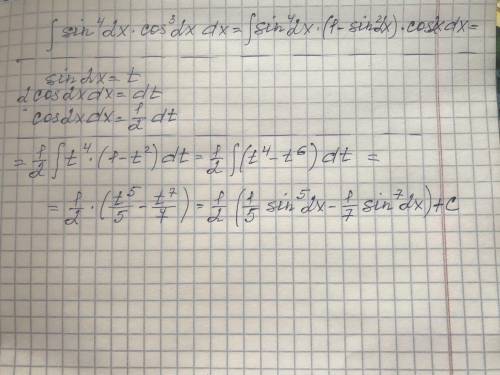 ∫ sin⁴2x · cos³2x dx = ∫ sin⁴2x · (1 - sin²2x) · cos2x dx =
sin2x = t
2cos2x dx = dt
cos2x dx = 1/2 dt
= 1/2 ∫ t⁴ · (1 - t²) dt = 1/2 ∫ (t⁴ - t⁶) dt =
= 1/2 · (t⁵/5 - t⁷/7) = 1/2 (1/5 sin⁵2x - 1/7 sin⁷2x) + C